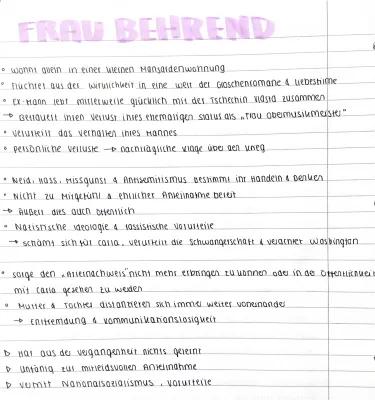 FRAU BEHREND
° wohnt allein in einer kleinen Mansardenwohnung
° flüchtet aus der Wirklichkeit in eine Welt der Groschenromane & Liebesfilme
° Ex-Mann lebt mittlerweile glücklich mit der Tschechin Vlasta zusammen
→ Bedauert ihren Verlust ihres ehemaligen Status als „Frau Obermusikmeister"
° Verurteilt das Verhalten ihres Mannes
° Persönliche Verluste → nachträgliche Klage über den Krieg
° Neid, Hass, Missgunst & Antisemitismus bestimmt ihr Handeln & Denken
° Nicht zu Mitgefühl & ehrlicher Anteilnahme bereit
→ Äußert dies auch öffentlich
° Nazistische Ideologie & rassistische Vorurteile
→ schämt sich für Carla, verurteilt die Schwangerschaft & verachtet Washington
° Sorge den „Ariernachweis" nicht mehr erbringen zu können oder in der Öffentlichkeit
mit Carla gesehen zu werden
° Mutter & Tochter distanzieren sich immer weiter voneinander
→ Entfremdung & Kommunikationslosigkeit
▷ Hat aus der Vergangenheit nichts gelernt
▷ Unfähig zur mitleidsvollen Anteilnahme
▷ Vertritt Nationalsozialismus, Vorurteile